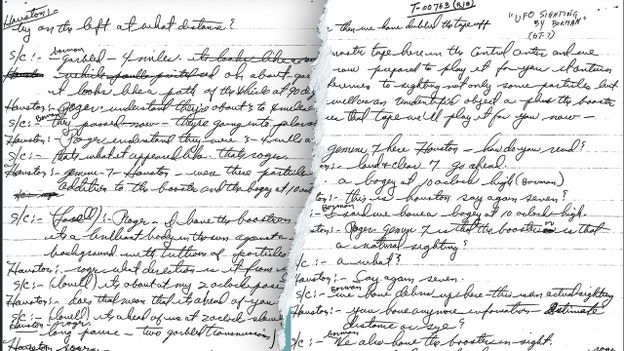 Houston:-
try on the left at what distance?
s/c:- Borman garbled - 4 miles. it looks like a
oh about
it looks like a path of the vehicle at 90 deg
Houston:- Roger understand they're about 3 to 4 miles
s/c:- Borman they passed now - they're going into polar
Houston:- Roger understand they were 3-4 miles
s/c:- that's what it appeared like. that's roger.
Houston:- gemini-7- Houston - were these particles
addition to the booster and the bogey at 10 o'clock
s/c:- (Lovell):- Roger - I have the booster on
it's a brilliant body in the sun against a
background with trillions of particles
Houston:- roger what direction is it from
s/c:- (Lovell) it's about at my 2 o'clock pos
Houston:- does that mean that it's ahead of you
s/c:- (Lovell) it's ahead of us at 2 o'clock
Houston roger
- long pause - two garbled transmissions)
Houston roger
T-00763 (R/B)
then we have dubbed the tape off
"UFO SIGHTING
BY BORMAN"
(GT-7)
tape here in the control center and we
now prepared to play it for you. it contains
references to sighting not only some particles but
well as an unidentified object a plus the booster
that tape we'll play it for you now -
gemini 7 here Houston - how do you read?
:- loud & clear 7 go ahead.
:- a bogey at 10 o'clock high (Borman)
:- this is houston say again seven?
:- Borman I said we have a bogey at 10 o'clock high.
:- Roger Gemini 7 is that the booster or is that
a natural sighting?
s/c:- a what?
Houston:- Say again seven.
s/c:- Borman we have debris up here - this is an actual sighting
Houston:- you have any more information - Estimate
distance or size?
s/c:- Borman We also have the booster in sight.